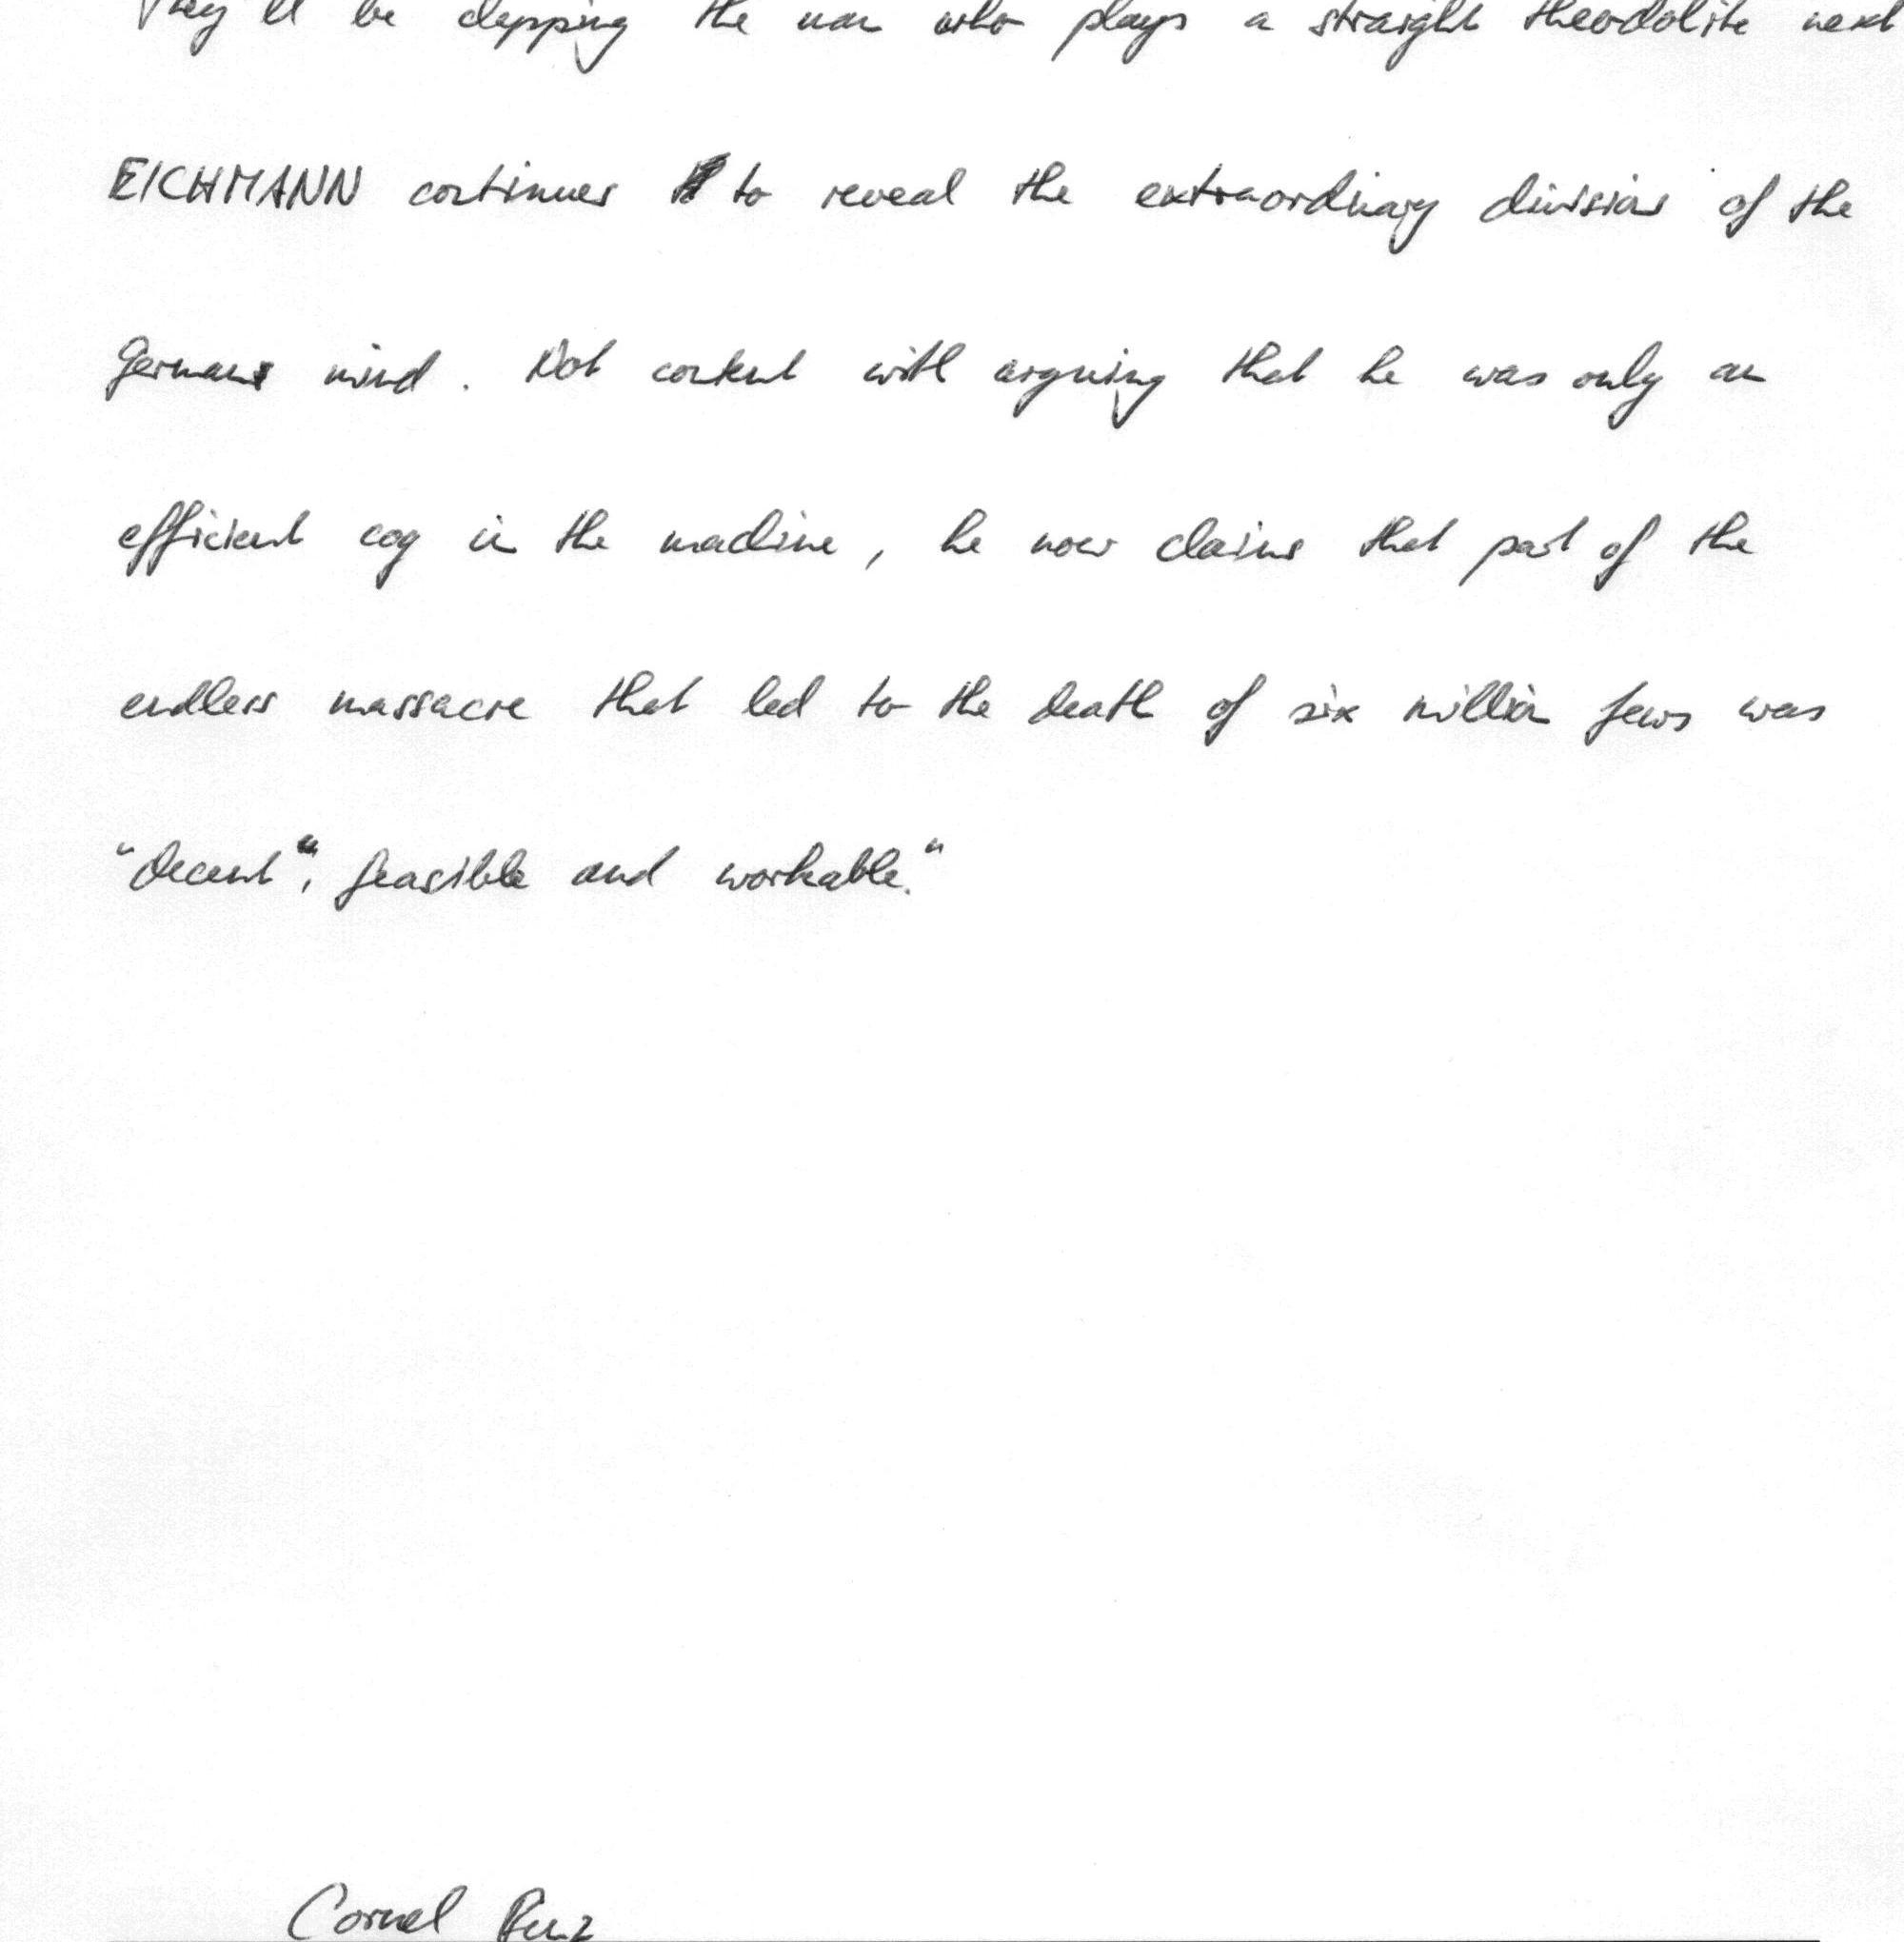 They'll be clapping the man who plays a straight theodolite next
EICHMANN continues to reveal the extraordinary divisions of the
Germans mind. Not content with arguing that he was only an
efficient cog in the machine, he now claims that part of the
endless massacre that led to the death of six million Jews was
"decent", feasible and workable."
Cornel